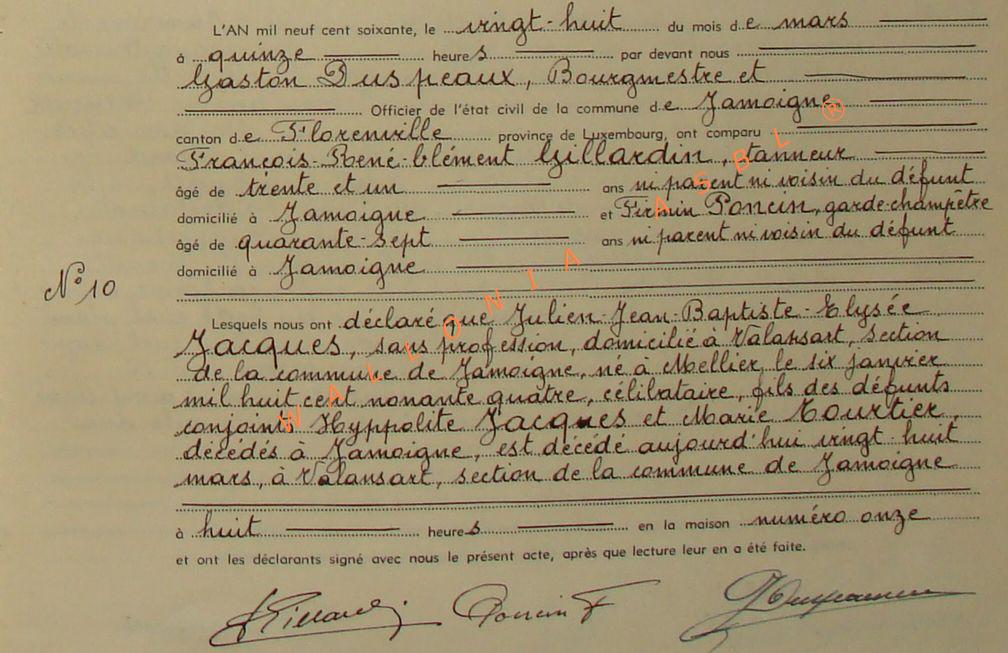 L'AN mil neuf cent soixante, le vingt-huit du mois de mars
à quinze heures par devant nous
Gaston Duspeaux, Bourgmestre et
Officier de l'état civil de la commune de Jamoigne
canton de Florenville province de Luxembourg, ont comparu
François-René-Clément Gillardin, tanneur
âgé de trente et un ans ni parent ni voisin du défunt
domicilié à Jamoigne et Firmin Poncin, garde-champêtre
âgé de quarante-sept ans ni parent ni voisin du défunt
domicilié à Jamoigne
N° 10
Lesquels nous ont déclaré que Julien-Jean-Baptiste-Elysée
Jacques, sans profession, domicilié à Valansart, section
de la commune de Jamoigne, né à Mellier le six janvier
mil huit cent nonante quatre, célibataire, fils des défunts
conjoints Hyppolite Jacques et Marie Tourtier,
décédés à Jamoigne, est décédé aujourd'hui vingt-huit
mars, à Valansart, section de la commune de Jamoigne
à huit heures en la maison numéro onze
et ont les déclarants signé avec nous le présent acte, après que lecture leur en a été faite.
Poncin F
WALLONIA ASBL ®